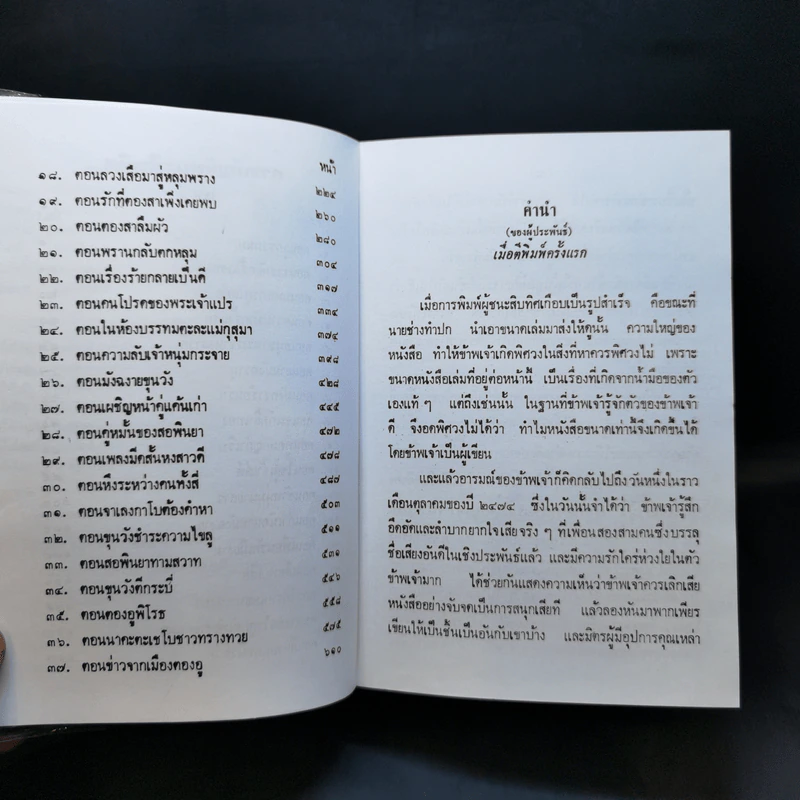 หน้า
๑๘. ตอนลวงเสือมาสู่หลุมพราง ๒๒๔
๑๙. ตอนรักที่ตองสาเพิ่งเคยพบ ๒๖๐
๒๐. ตอนตองสาลืมผัว ๒๘๐
๒๑. ตอนพรานกลับตกหลุม ๓๐๔
๒๒. ตอนเรื่องร้ายกลายเป็นดี ๓๑๗
๒๓. ตอนคนโปรดของพระเจ้าแปร ๓๓๔
๒๔. ตอนในห้องบรรทมตะละแม่กุสุมา ๓๗๔
๒๕. ตอนความลับเจ้าหนุ่มกระจาย ๓๙๘
๒๖. ตอนมังฉงายขุนวัง ๔๒๘
๒๗. ตอนเผชิญหน้าคู่แค้นเก่า ๔๔๕
๒๘. ตอนคู่หมั้นของสอพินยา ๔๗๒
๒๙. ตอนเพลงมีดสั้นหงสาวดี ๔๗๘
๓๐. ตอนหึงระหว่างคนทั้งสี่ ๔๘๗
๓๑. ตอนจาเลงกาโบต้องคำหา ๕๐๓
๓๒. ตอนขุนวังชำระความไขลู ๕๑๑
๓๓. ตอนสอพินยาทามสวาท ๕๓๑
๓๔. ตอนขุนวังตีกระบี่ ๕๔๖
๓๕. ตอนตองอูพิโรธ ๕๕๘
๓๖. ตอนนาคะตะเชโบชาวทรางทวย ๕๗๕
๓๗. ตอนข่าวจากเมืองตองอู ๖๑๐
คำนำ
(ของผู้ประพันธ์)
เมื่อตีพิมพ์ครั้งแรก
เมื่อการพิมพ์ผู้ชนะสิบทิศเกือบเป็นรูปสำเร็จ คือขณะที่
นายช่างทำปก นำเอาขนาดเล่มมาส่งให้ดูนั้น ความใหญ่ของ
หนังสือ ทำให้ข้าพเจ้าเกิดพิศวงในสิ่งที่ควรพิศวงไม่ เพราะ
ขนาดหนังสือเล่มที่อยู่ต่อหน้านี้ เป็นเรื่องที่เกิดจากน้ำมือของตัว
เองแท้ ๆ แต่ถึงเช่นนั้น ในฐานที่ข้าพเจ้ารู้จักตัวของข้าพเจ้า
ดี จึงอดพิศวงไม่ได้ว่า ทำไมหนังสือขนาดเท่านี้จึงเกิดขึ้นได้
โดยข้าพเจ้าเป็นผู้เขียน
และแล้วอารมณ์ของข้าพเจ้าก็คิดกลับไปถึงวันหนึ่งในราว
เดือนตุลาคมของปี ๒๔๗๔ ซึ่งในวันนั้นจำได้ว่า ข้าพเจ้ารู้สึก
อึดอัดและลำบากยากใจเสียจริง ๆ ที่เพื่อนสองสามคนซึ่งบรรลุ
ชื่อเสียงอันดีในเชิงประพันธ์แล้ว และมีความรักใคร่ห่วงใยในตัว
ข้าพเจ้ามาก ได้ช่วยกันแสดงความเห็นว่าข้าพเจ้าควรเลิกเสีย
หนังสืออย่างจับจดเป็นการสนุกเสียที แล้วลองหันมาพากเพียร
เขียนให้เป็นชิ้นเป็นอันกับเขาบ้าง และมิตรผู้มีอุปการคุณเหล่า